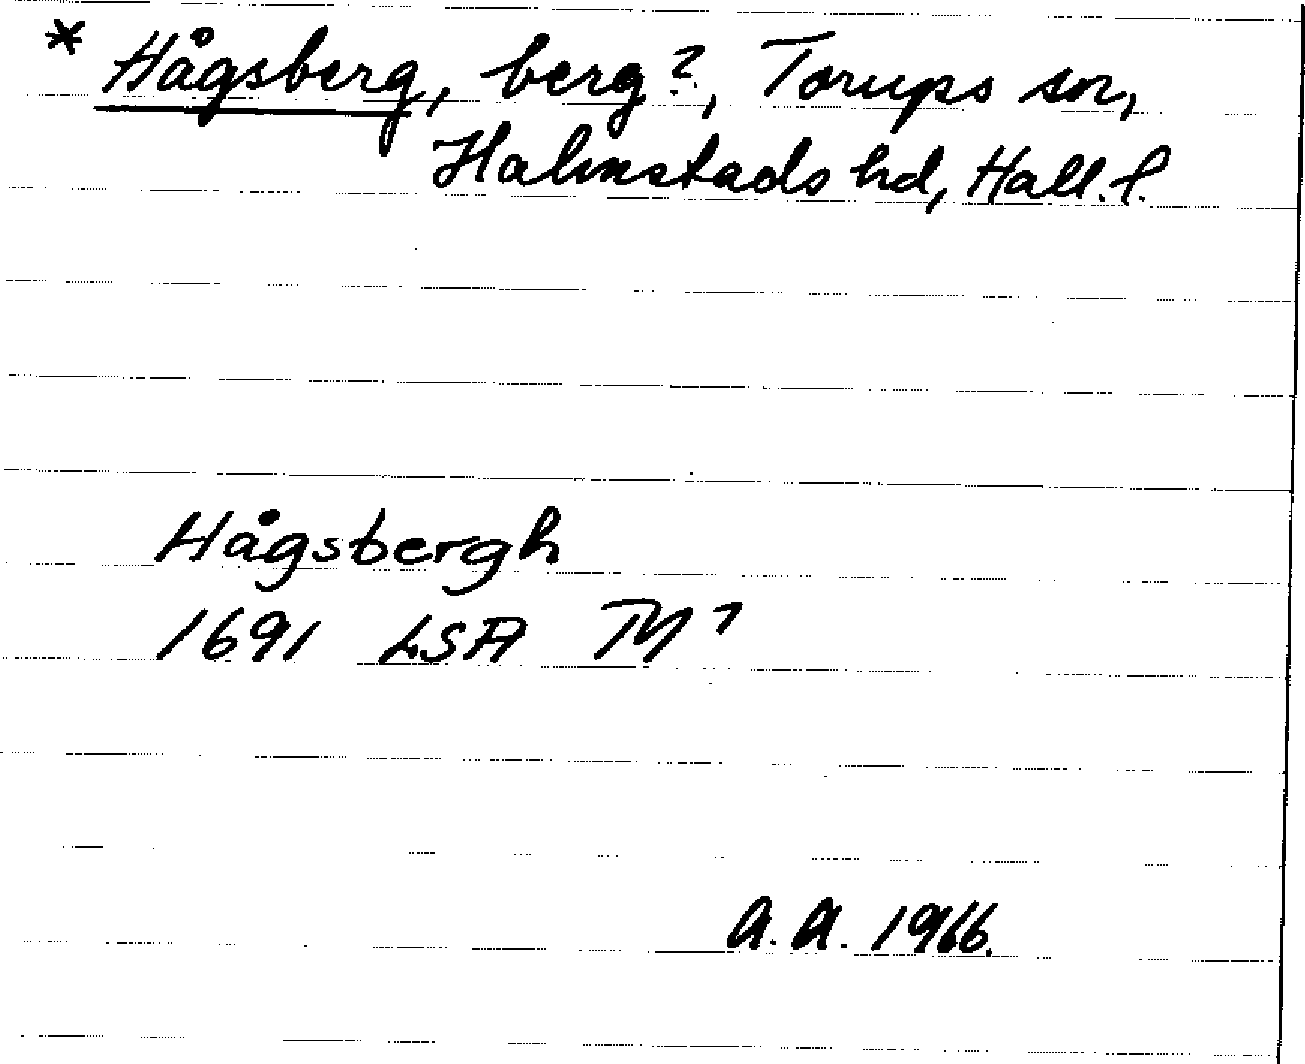 * Hågsberg, berg?, Torups sn,
Halmstads hd, Hall. l.
Hågsbergh
1691 LSA
A. A. 1966.